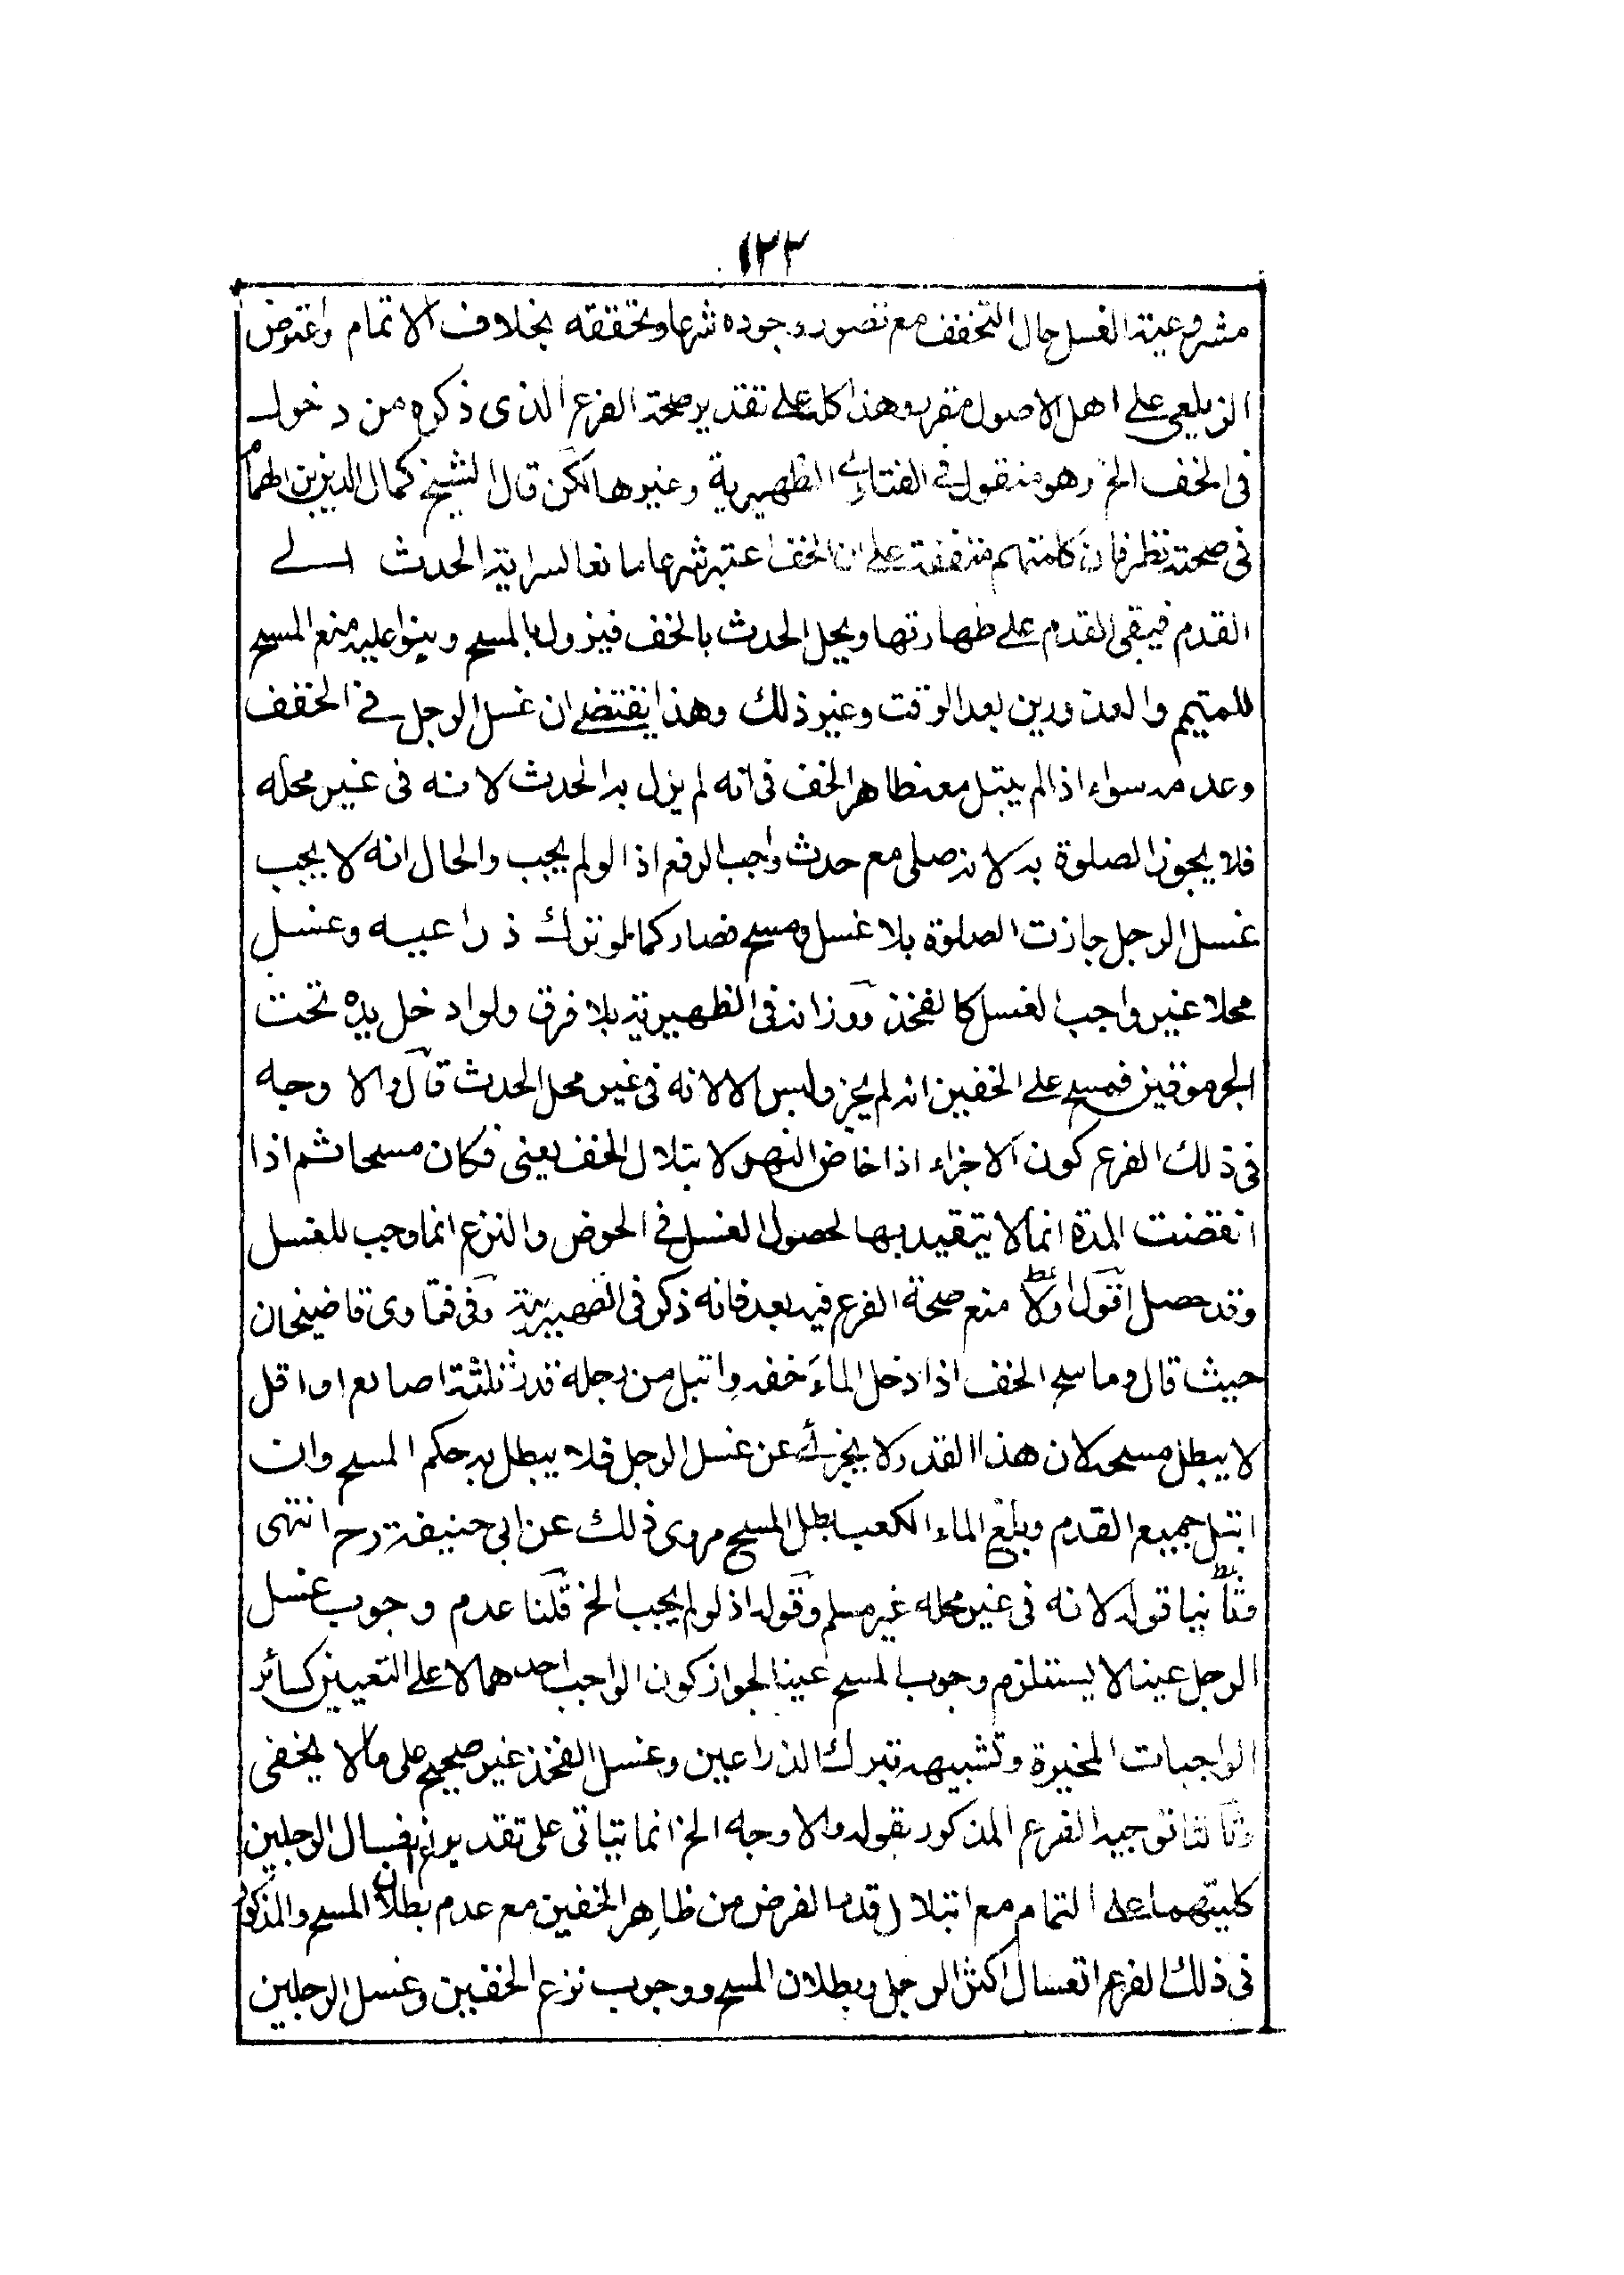 ١٢٣
مشروعية الغسل حال التخفف مع تصور وجوده شرعا وتحققه بخلاف الاتمام واعتراض
الزيلعي على اهل الاصول متفرع وهذا كله على تقدير صحة الفرع الذى ذكره من دخول
فى الخف الخ وهو منقول فى الفتاوى الظهيرية وغيرها لكن قال الشيخ كمال الدين بن الهمام
فى صحته نظر فان كلمتهم متفقة على ان الخف اعتبر شرعا مانعا لسراية الحدث الى
القدم فيبقى القدم على طهارتها ويحل الحدث بالخف فيزول بالمسح وبنوا عليه منع المسح
للمتيمم والمعذورين بعد الوقت وغير ذلك وهذا يقتضى ان غسل الرجل فى الخف
وعدمه سواء اذا لم يبتل معه ظاهر الخف فى انه لم يزل به الحدث لانه فى غير محله
فلا يجوز الصلوة به لانه صلى مع حدث واجب الرفع اذ لو لم يجب والحال انه لا يجب
غسل الرجل جازت الصلوة بلا غسل ومسح فصار كما لو ترك ذراعيه وغسل
محلا غير واجب الغسل كالفخذ ووزانه فى الظهيرية بلا فرق ولو ادخل يده تحت
الجرموقين فمسح على الخفين انه لم يجز وليس الا لانه فى غير محل الحدث قال والا وجه
فى ذلك الفرع كون الاجزاء اذا خاض النهر لابتلال الخف يعنى فكان مسحا ثم اذا
انقضت المدة انما لا يتقيد بها لحصول الغسل فى الحوض والنزع انما وجب للغسل
وقد حصل اقول اولا منع صحة الفرع فيه بعد فانه ذكر فى الظهيرية وفى فتاوى قاضيخان
حيث قال وماسح الخف اذا دخل الماء خفه وابتل من رجله قدر ثلثة اصابع او اقل
لا يبطل مسحه لان هذا القدر لا يجزئه عن غسل الرجل فلا يبطل به حكم المسح وان
ابتل جميع القدم وبلغ الماء الكعب بطل المسح مروى ذلك عن ابى حنيفة رح انتهى
وثانيا قوله لانه فى غير محله غير مسلم وقوله اذ لو لم يجب الخ قلنا عدم وجوب غسل
الرجل عينا لا يستلزم وجوب المسح عينا لجواز كون الواجب احدهما لا على التعيين كسائر
الواجبات المخيرة وتشبيهه بترك الذراعين وغسل الفخذ غير صحيح على ما لا يخفى
وثالثا توجيه الفرع المذكور بقوله والا وجه الخ انما يتاتى على تقدير انغسال الرجلين
كليتهما على التمام مع ابتلال قدر الفرض من ظاهر الخفين مع عدم بطلان المسح والمذكور
فى ذلك الفرع انغسال اكثر الرجل وبطلان المسح ووجوب نزع الخفين وغسل الرجلين